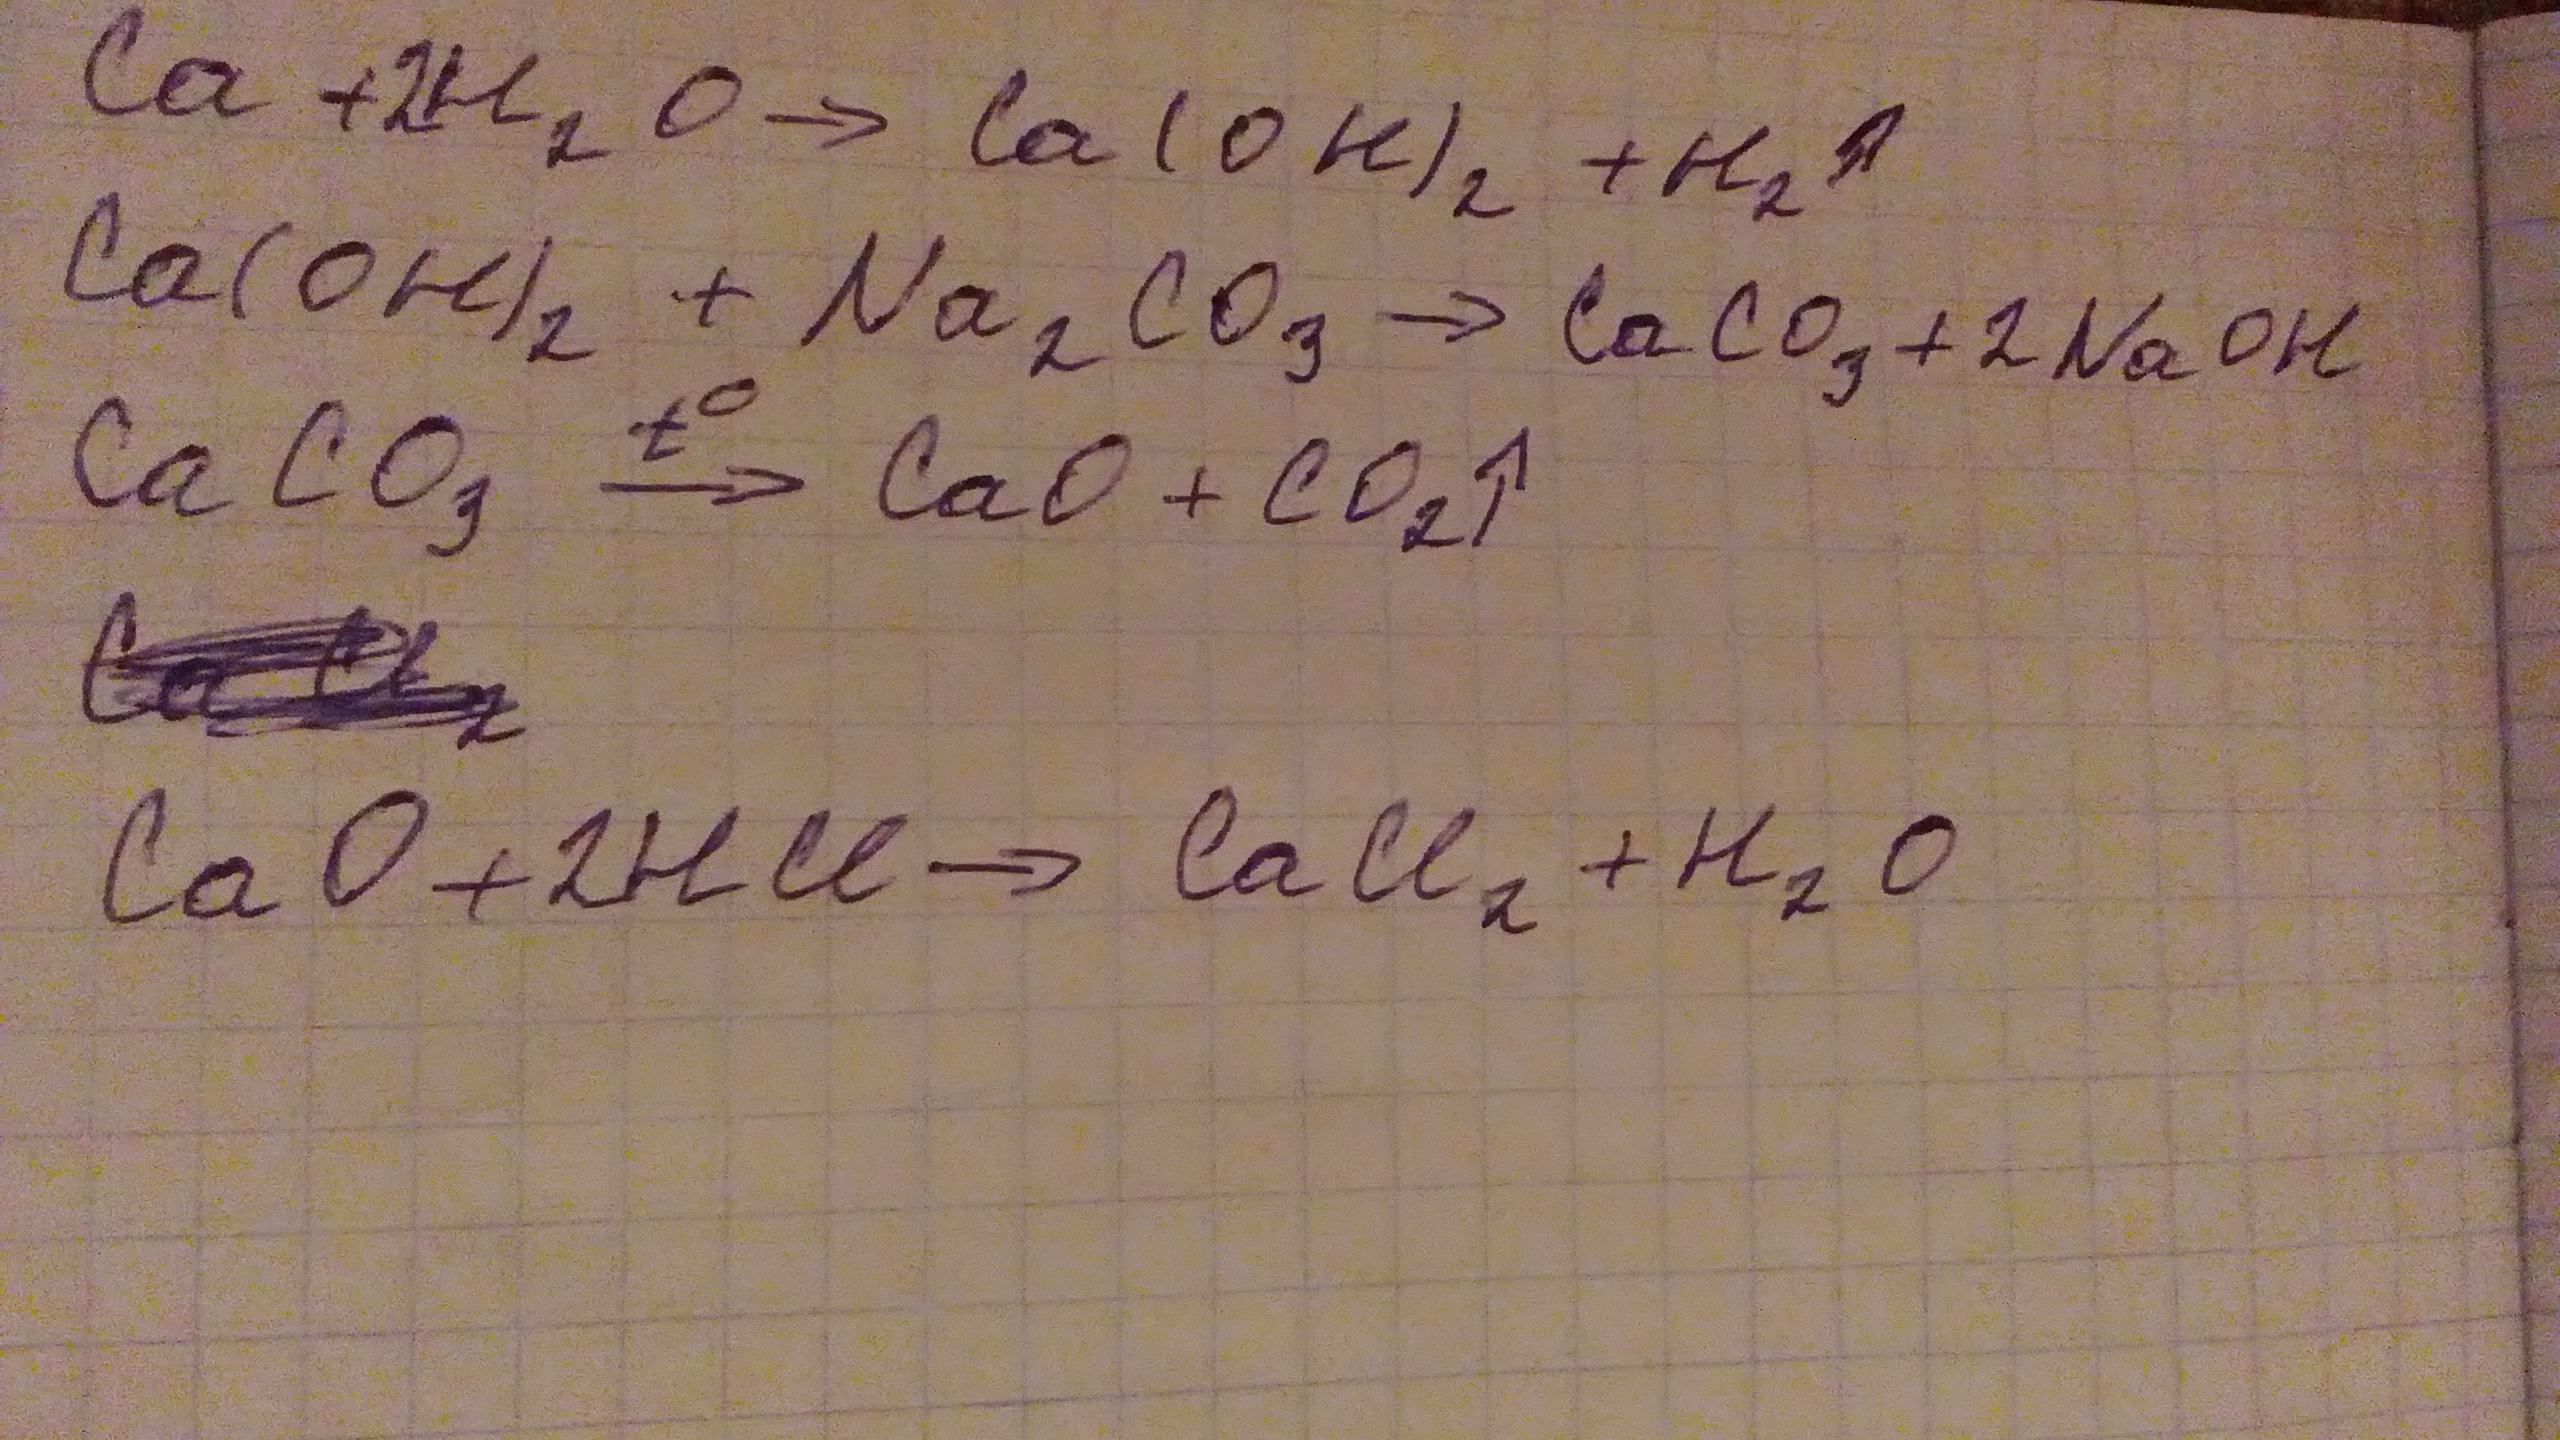 Ca + 2H₂O → Ca(OH)₂ + H₂↑
Ca(OH)₂ + Na₂CO₃ → CaCO₃ + 2NaOH
CaCO₃ —t°→ CaO + CO₂↑
CaCl₂
CaO + 2HCl → CaCl₂ + H₂O